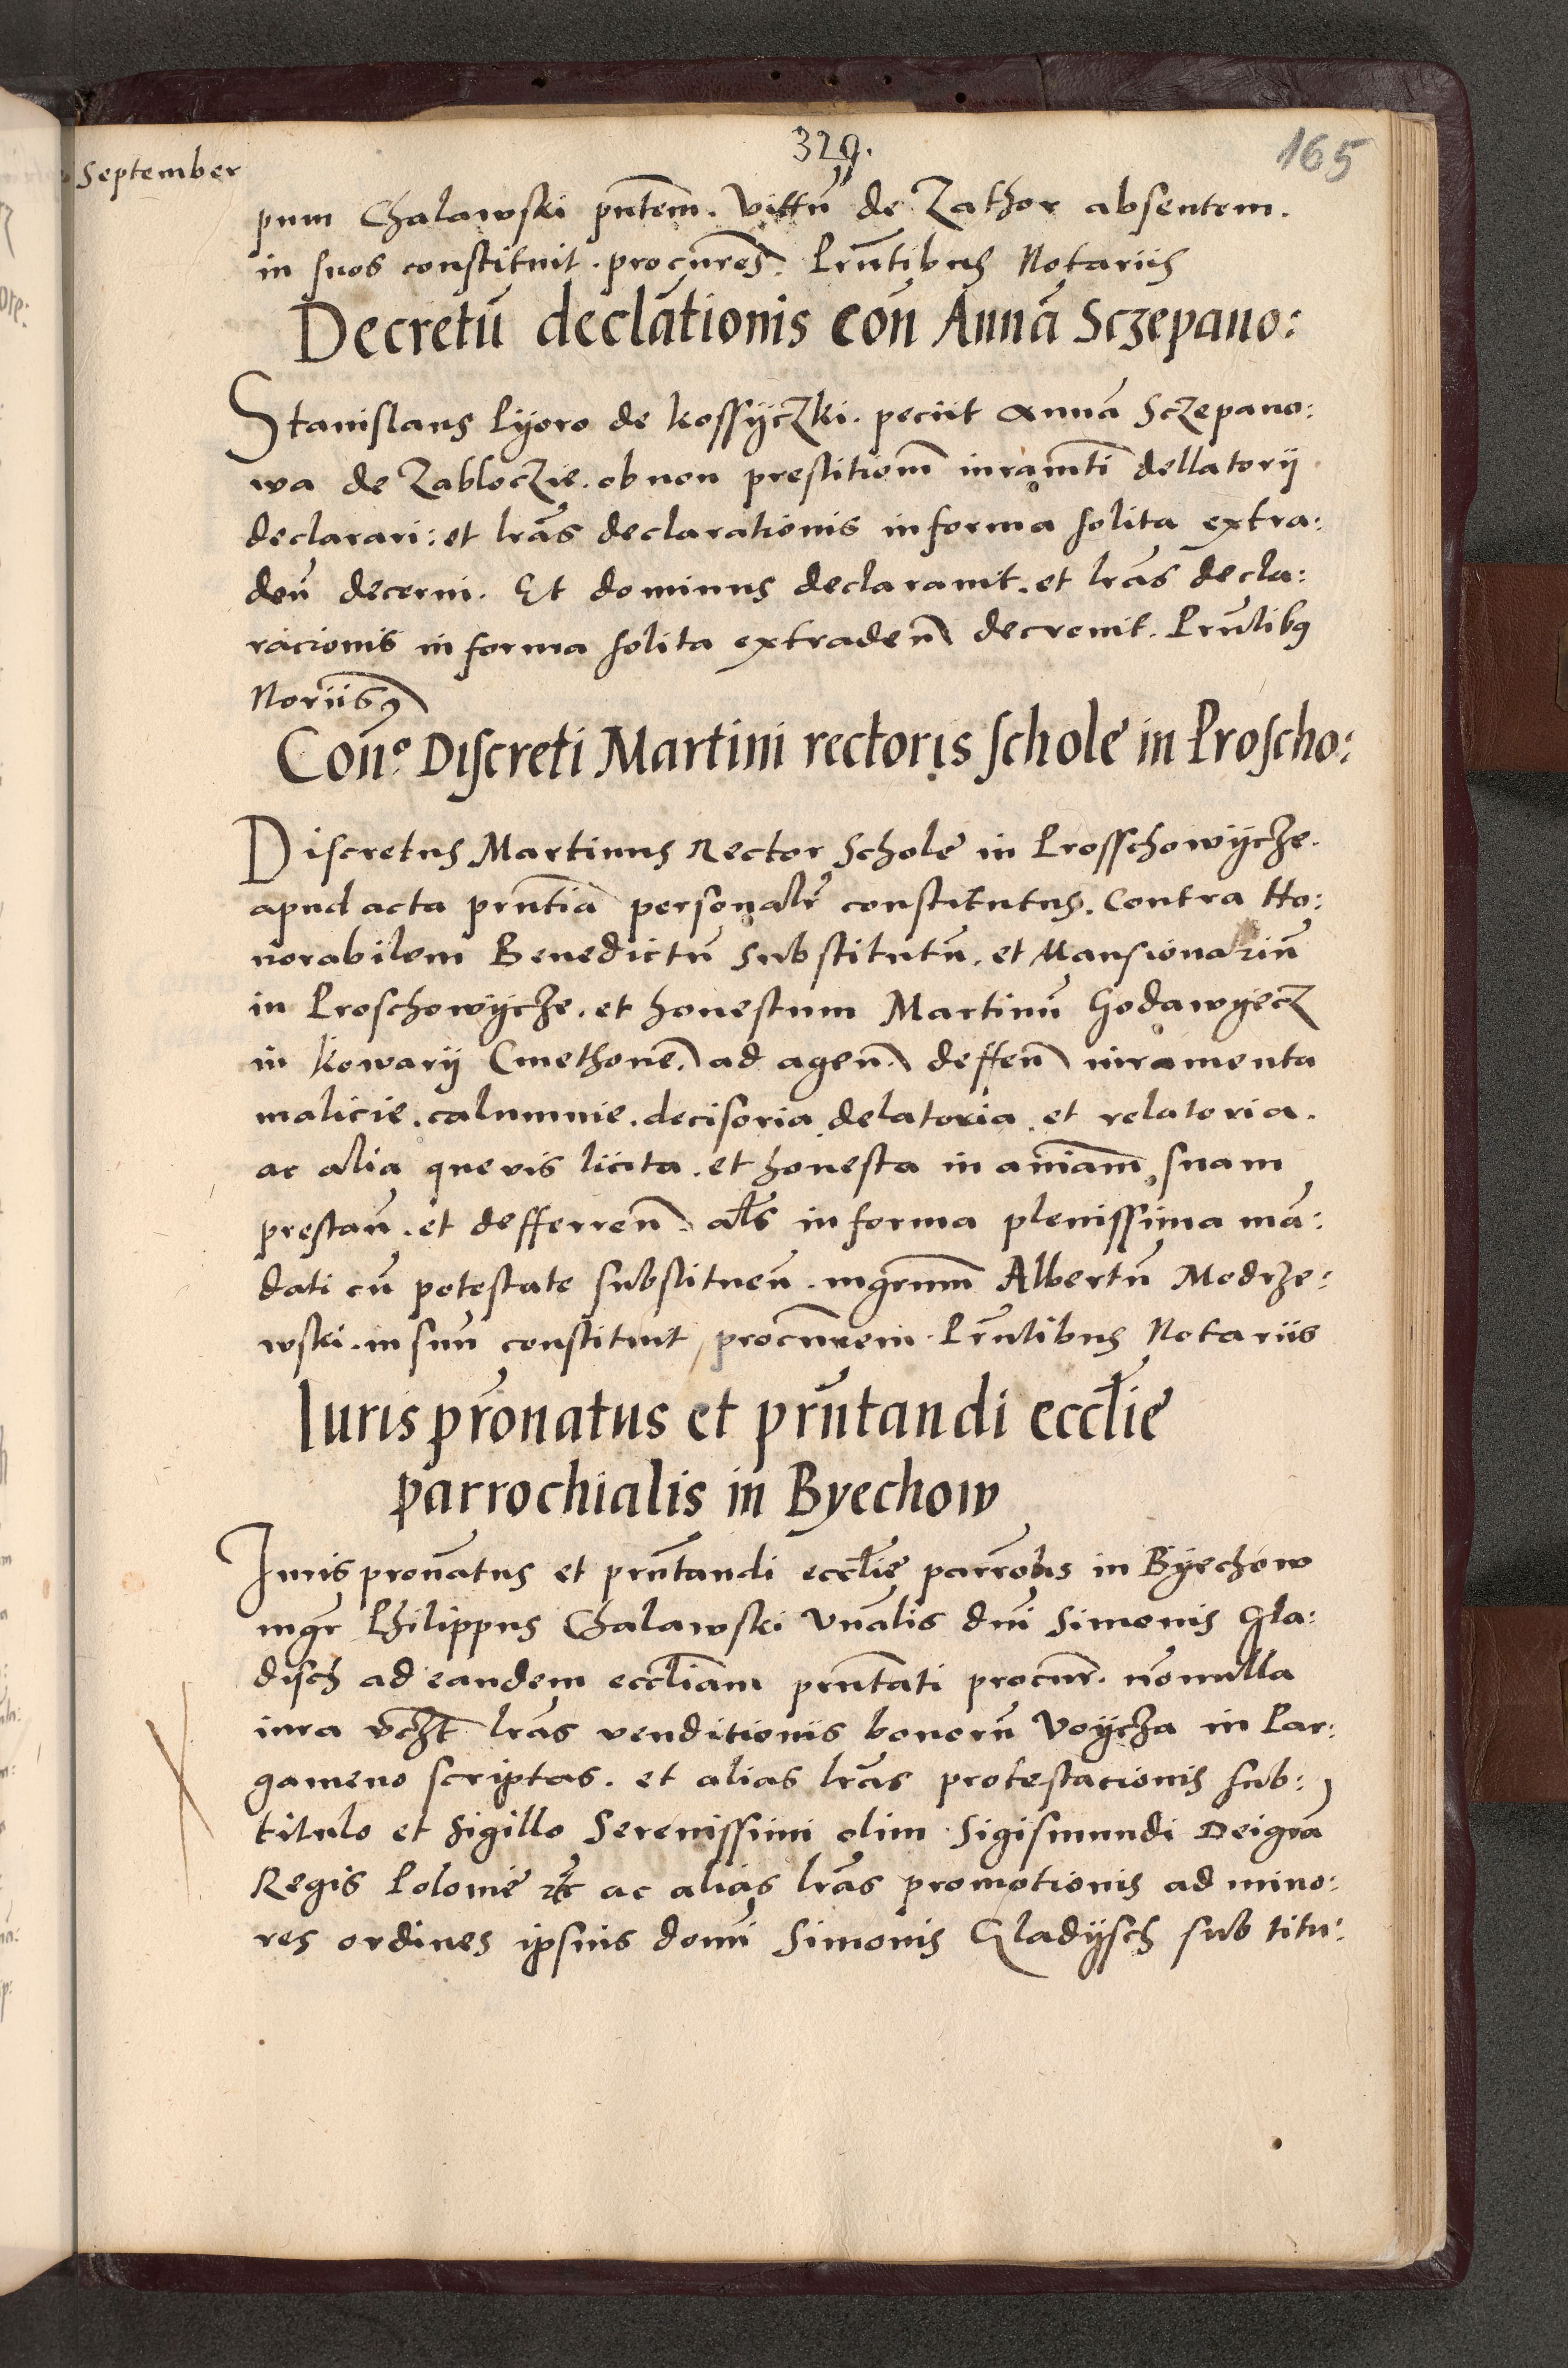 329.
165
September
pum Chalawski pntem. Vittu de Zathor absentem.
in suos constituit procures. Prntibus Notariis
Decretu declationis con Anna Sczepano:
Stanislaus Pyoro de Kossyczki. peciit Anna Sczepano:
wa de Zabloczie. ob non prestitiom iuramti dellatorii
declarari: et lras declarationis in forma solita extra:
den decerni. Et dominus declarauit. et lras decla:
racionis in forma solita extraden decreuit. Prntibus
Noriis
Con° Discreti Martini rectoris schole in Proscho:
Discretus Martinus Rector Schole in Prosschowycze.
apud acta prntia personalr constitutus. Contra Ho:
norabilem Benedictu Substitutu. et Mansionariu
in Proschowycze. et honestum Martinu Godawyecz
in Kowary Cmethone. ad agen. deffen iuramenta
malicie. calumnie. decisoria delatoria et relatoria.
ac alia queuis licita. et honesta in aniam suam
prestan. et defferren. als in forma plenissima ma:
dati cu potestate substituen. mgrum Albertu Modrze:
wski. in suu constituit procurem. Prntibus Notariis
Iuris pronatus et prntandi ecclie
parrochialis in Byechow
Iuris pronatus et prntandi ecclie parrolis in Byechow
mgr Philippus Chalawski Vnalis dni Simonis Gla:
disch ad eandem eccliam prntati procur. nonulla
iura vczt lras venditionis bonoru Voycza in Par:
gameno scriptas. et alias lras protestacionis sub:
titulo et sigillo Serenissimi olim Sigismundi Dei gra
Regis Polonie etc ac alias lras promotionis ad mino:
res ordines ipsius domi Simonis Gladysch sub titu: